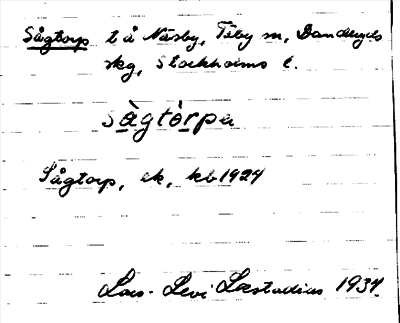 Sågtorp t å Näsby, Täby sn, Danderyds
skg, Stockholms l.
sàgtòrpa
Sågtorp, ek, kb 1924
Lars-Levi Læstadius 1934.